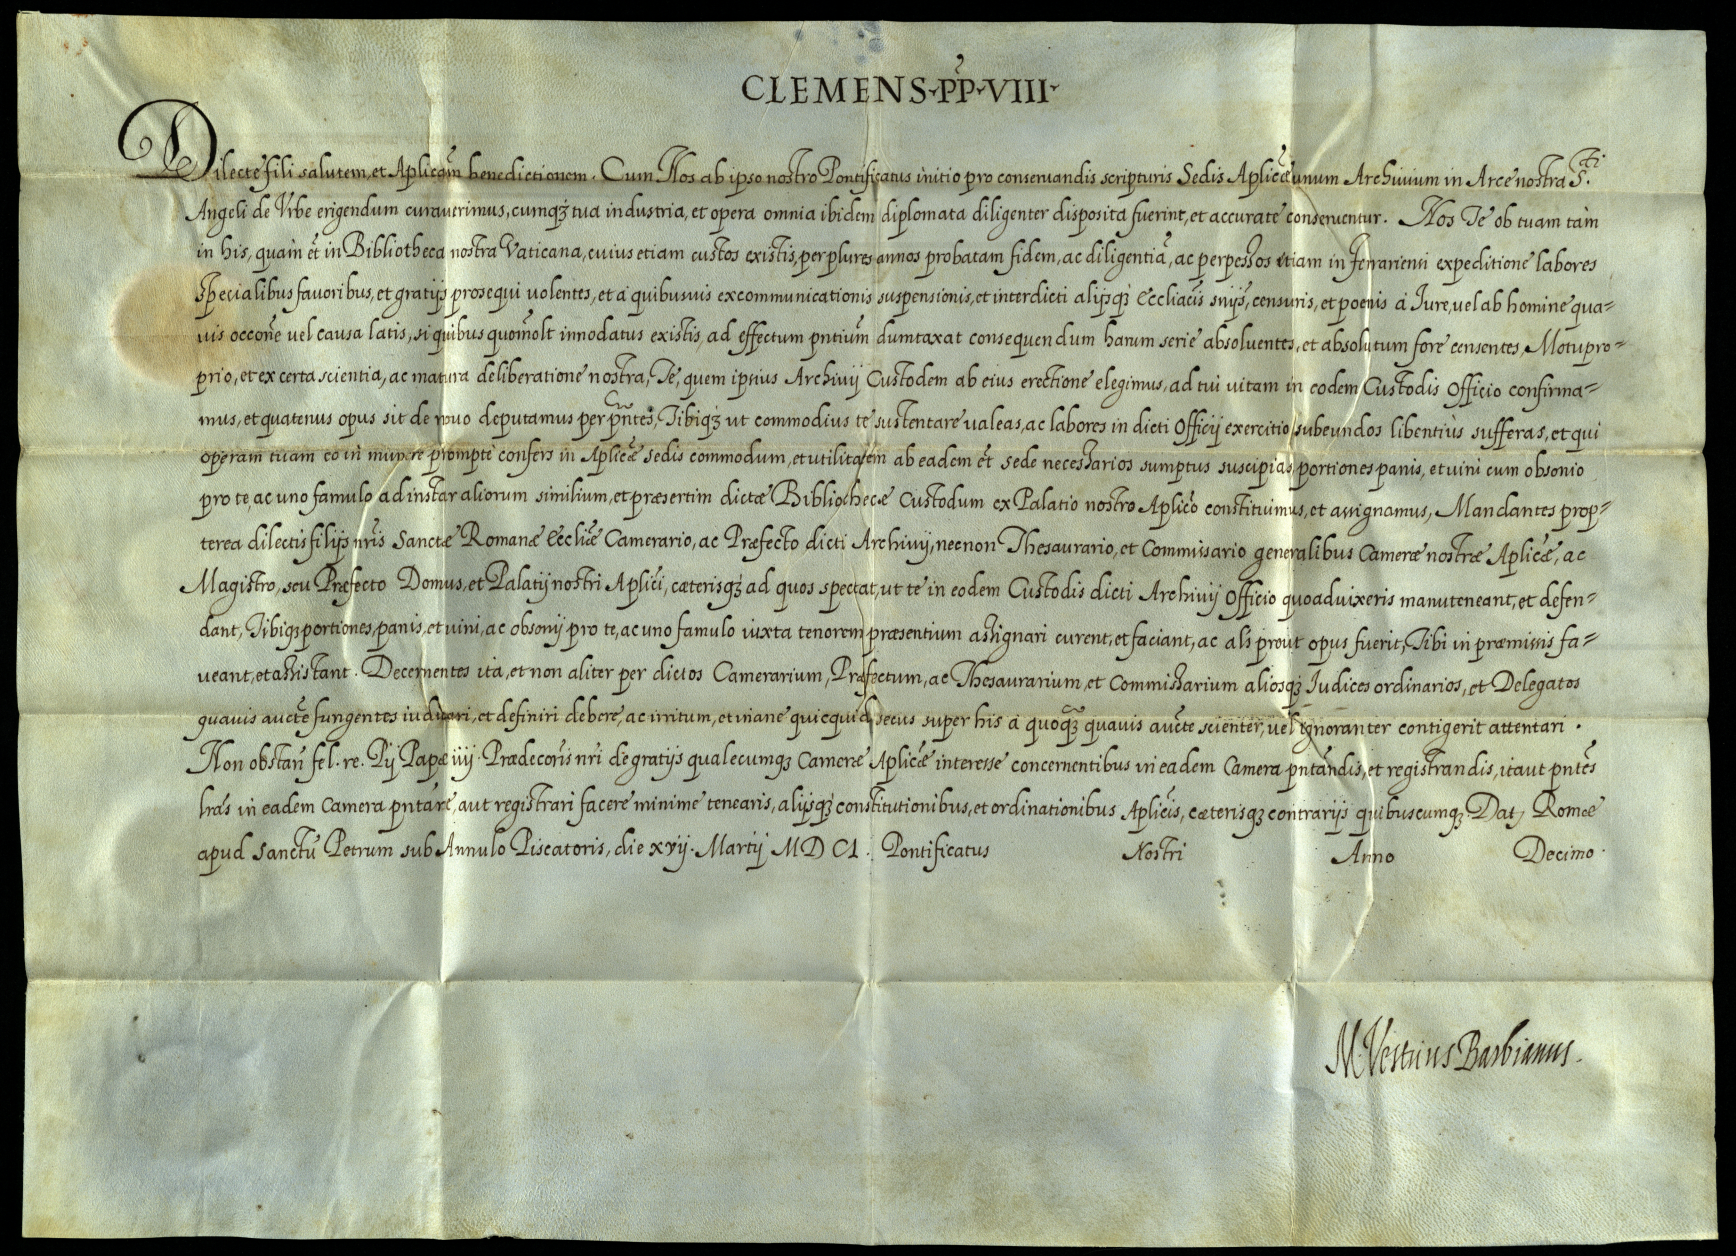 CLEMENS·PP·VIII·
Dilecte fili salutem, et Aplicam benedictionem. Cum Nos ab ipso nostro Pontificatus initio pro conseruandis scripturis Sedis Aplicæ unum Archiuium in Arce nostra S.ti
Angeli de Vrbe erigendum curauerimus, cumqꝫ tua industria, et opera omnia ibidem diplomata diligenter disposita fuerint, et accurate conseruentur. Nos Te ob tuam tàm
in his, quàm et in Bibliotheca nostra Vaticana, cuius etiam custos existis, per plures annos probatam fidem, ac diligentiã, ac perpessos etiam in Ferrariensi expeditione labores
specialibus fauoribus, et gratijs prosequi uolentes, et à quibusuis excommunicationis suspensionis, et interdicti alijsqꝫ Eccliacis snijs, censuris, et poenis à Iure, vel ab homine qua-
uis occone vel causa latis, si quibus quomolt innodatus existis, ad effectum pntium dumtaxat consequendum harum serie absoluentes, et absolutum fore censentes, Motu pro-
prio, et ex certa scientia, ac matura deliberatione nostra, Te, quem ipsius Archiuij Custodem ab eius erectione elegimus, ad tui uitam in eodem Custodis Officio confirma-
mus, et quatenus opus sit de nouo deputamus per pntes, Tibiqꝫ ut commodius te sustentare ualeas, ac labores in dicti Officij exercitio subeundos libentiùs sufferas, et qui
operam tuam eo in munere promptè confers in Aplicæ Sedis commodum, et utilitatem ab eadem et Sede necessarios sumptus suscipias portiones panis, et uini cum obsonio
pro te, ac uno famulo ad instar aliorum similium, et præsertim dictæ Bibliothecæ Custodum ex Palatio nostro Aplico constituimus, et assignamus, Mandantes prop-
terea dilectis filijs nris Sanctæ Romanæ Eccliæ Camerario, ac Præfecto dicti Archiuij, necnon Thesaurario, et Commissario generalibus Cameræ nostræ Aplicæ, ac
Magistro, seu Præfecto Domus, et Palatij nostri Aplici, cæterisqꝫ ad quos spectat, ut te in eodem Custodis dicti Archiuij Officio quoad uixeris manuteneant, et defen-
dant, Tibiqꝫ portiones, panis, et uini, ac obsonij pro te, ac uno famulo iuxta tenorem præsentium assignari curent, et faciant, ac als prout opus fuerit, Tibi in præmissis fa-
ueant, et assistant. Decernentes ita, et non aliter per dictos Camerarium, Præfectum, ac Thesaurarium, et Commissarium aliosqꝫ Iudices ordinarios, et Delegatos
quauis aucte fungentes iudicari, et definiri debere, ac irritum, et inane quicquid secus super his à quoqꝫ quauis aucte scienter, uel ignoranter contigerit attentari.
Non obstan fel. re. Pij Papæ iiij. Prædecoris nri de gratijs qualecumqꝫ Cameræ Aplicæ interesse concernentibus in eadem Camera pntandis, et registrandis, ita ut pntes
lras in eadem Camera pntare, aut registrari facere minime tenearis, alijsqꝫ constitutionibus, et ordinationibus Aplicis, cæterisqꝫ contrarijs quibuscumqꝫ Dat, Romæ
apud Sanctũ Petrum sub Annulo Piscatoris, die xvij. Martij MDCI. Pontificatus Nostri Anno Decimo.
M. Vestrius Barbianus.